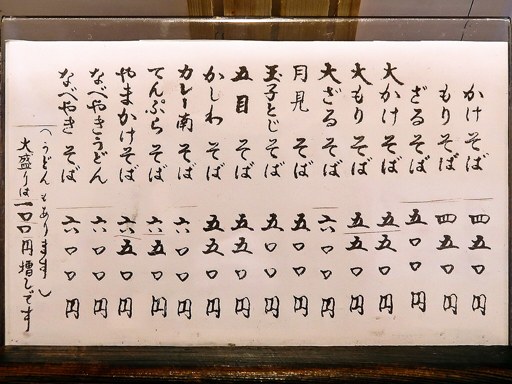 かけそば 四五〇円
もりそば 四五〇円
ざるそば 五〇〇円
大かけそば 五五〇円
大もりそば 五五〇円
大ざるそば 六〇〇円
月見そば 五〇〇円
玉子とじそば 五〇〇円
五目そば 五五〇円
かしわそば 五五〇円
カレー南そば 六〇〇円
てんぷらそば 六五〇円
やまかけそば 六五〇円
なべやきうどん 六〇〇円
なべやきそば 六〇〇円
(うどんもあります)
大盛りは一〇〇円増しです